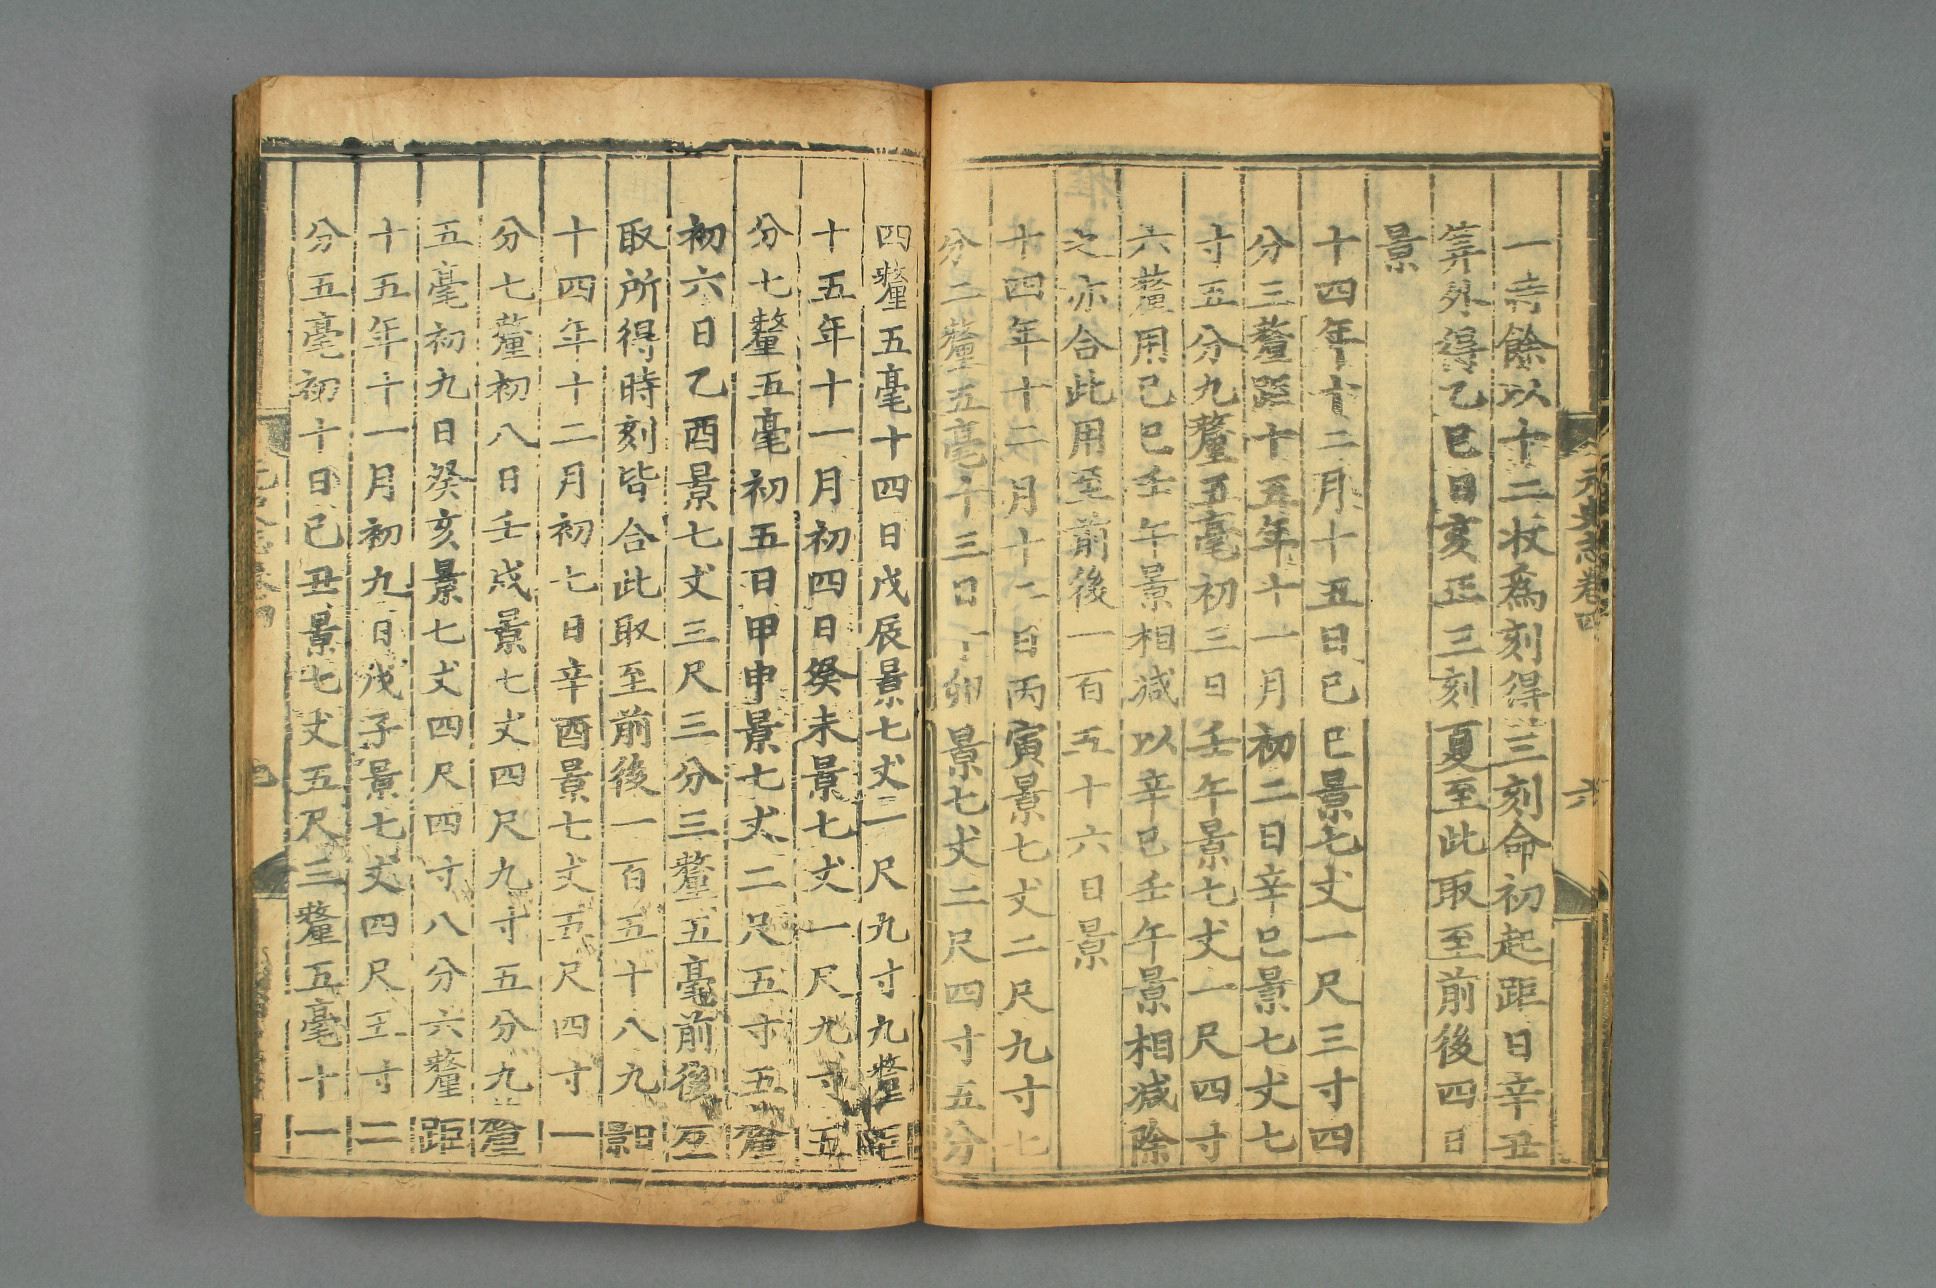 元史志卷四
六
一刻餘以十二收為刻得三刻命初起距日辛丑
筭外得乙巳日亥正三刻夏至此取至前後四日
景
十四年十二月十五日己巳景七丈一尺三寸四
分三釐距十五年十一月初二日辛巳景七丈七
寸五分九釐五毫初三日壬午景七丈一尺四寸
六釐用己巳壬午景相減以辛巳壬午景相減除
之亦合此用至前後一百五十六日景
十四年十二月十二日丙寅景七丈二尺九寸七
分二釐五毫十三日丁卯景七丈二尺四寸五分
四釐五毫十四日戊辰景七丈二尺九寸九釐距
十五年十一月初四日癸未景七丈一尺九寸五
分七釐五毫初五日甲申景七丈二尺五寸五釐
初六日乙酉景七丈三尺三分三釐五毫前後互
取所得時刻皆合此取至前後一百五十八九景
十四年十二月初七日辛酉景七丈五尺四寸一
分七釐初八日壬戌景七丈四尺九寸五分九釐
五毫初九日癸亥景七丈四尺四寸八分六釐距
十五年十一月初九日戊子景七丈四尺五寸二
分五毫初十日己丑景七丈五尺三釐五毫十一